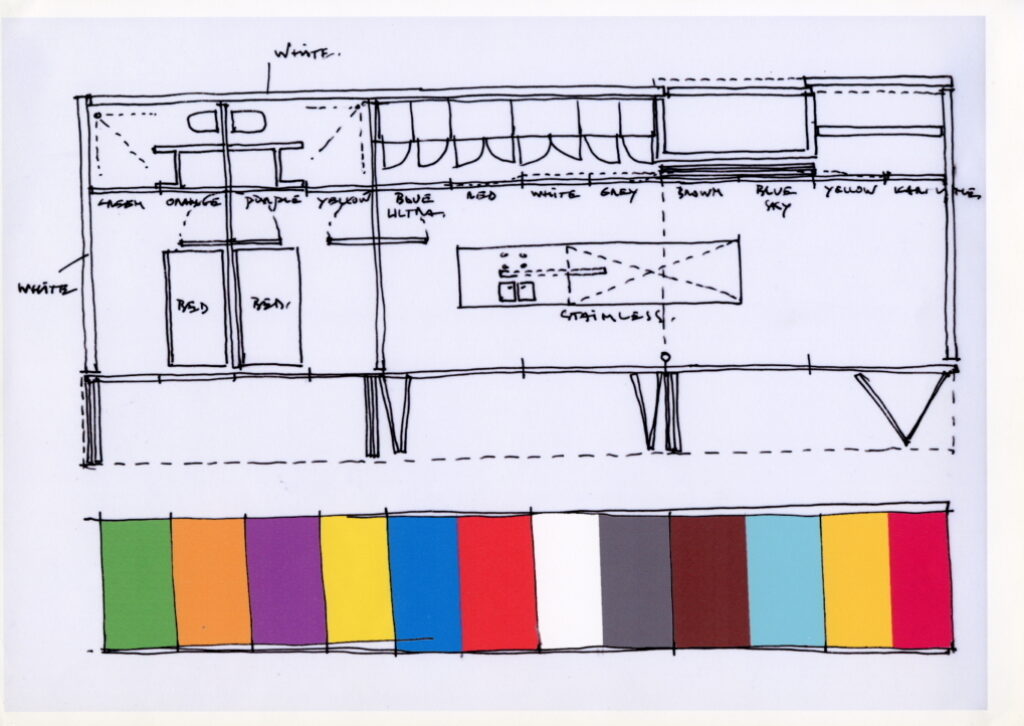 WHITE.
GREEN ORANGE PURPLE YELLOW BLUE RED WHITE GREY BROWN BLUE YELLOW
ULTRA. SKY
WHITE
BED BED.
STAINLESS.